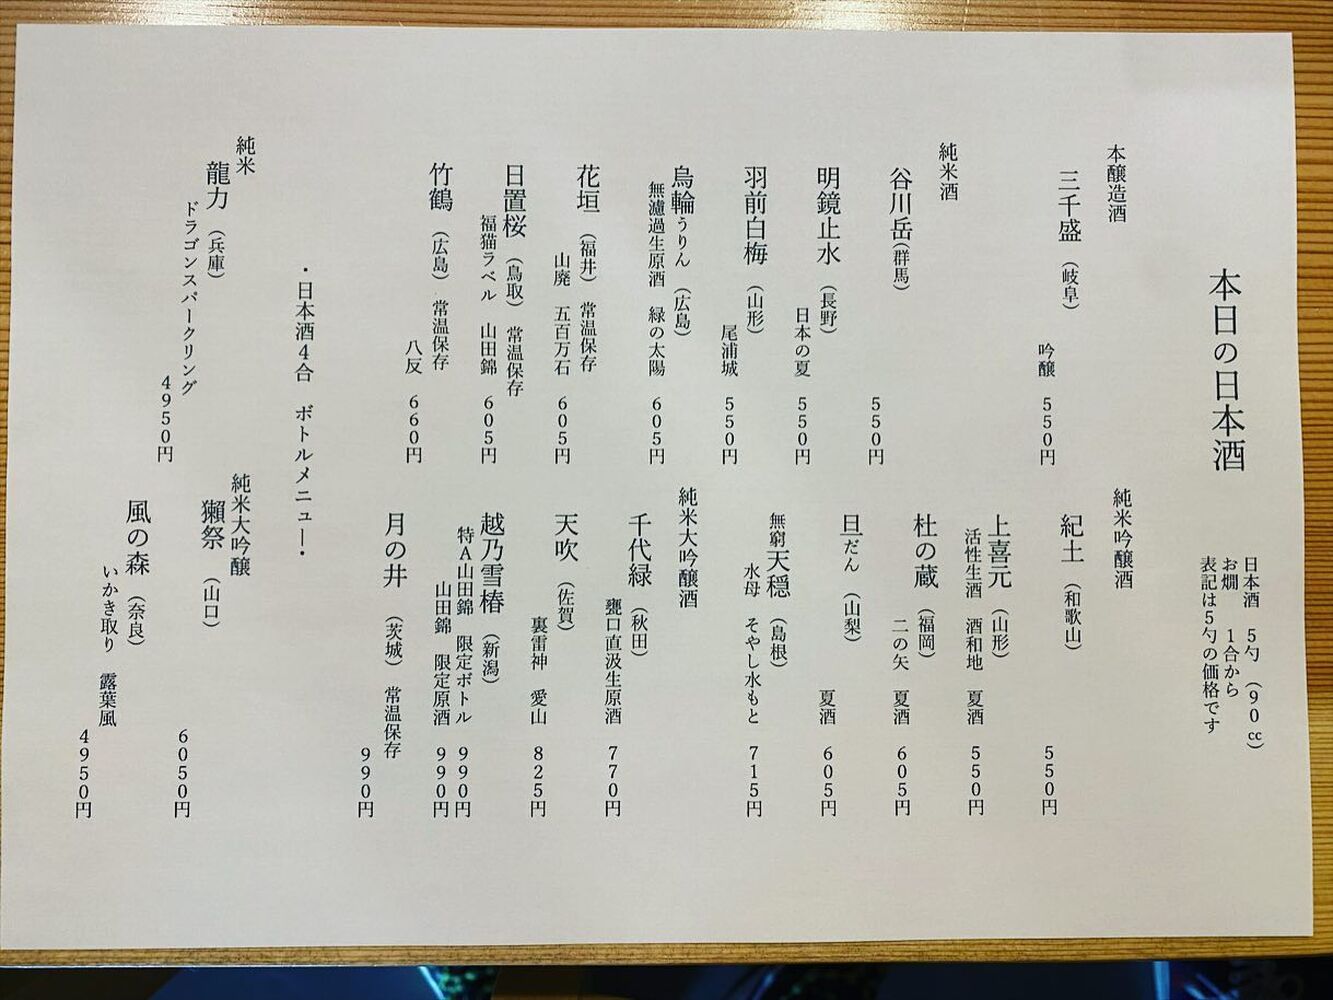 本日の日本酒
日本酒 5勺(90㏄)
お燗 1合から
表記は5勺の価格です
本醸造酒
三千盛(岐阜)
吟醸 550円
純米酒
谷川岳(群馬)
550円
明鏡止水(長野)
日本の夏 550円
羽前白梅(山形)
尾浦城 550円
烏輪うりん(広島)
無濾過生原酒 緑の太陽 605円
花垣(福井)常温保存
山廃 五百万石 605円
日置桜(鳥取)常温保存
福猫ラベル 山田錦 605円
竹鶴(広島)常温保存
八反 660円
純米吟醸酒
紀土(和歌山)
550円
上喜元(山形)
活性生酒 酒和地 夏酒 550円
杜の蔵(福岡)
二の矢 夏酒 605円
旦だん(山梨)
夏酒 605円
無窮天穏(島根)
水母 そやし水もと 715円
純米大吟醸酒
千代緑(秋田)
甕口直汲生原酒 770円
天吹(佐賀)
裏雷神 愛山 825円
越乃雪椿(新潟)
特A山田錦 限定ボトル 990円
山田錦 限定原酒 990円
月の井(茨城)常温保存
990円
・日本酒4合 ボトルメニュー・
純米
龍力(兵庫)
ドラゴンスパークリング
4950円
純米大吟醸
獺祭(山口)
6050円
風の森(奈良)
いかき取り 露葉風
4950円